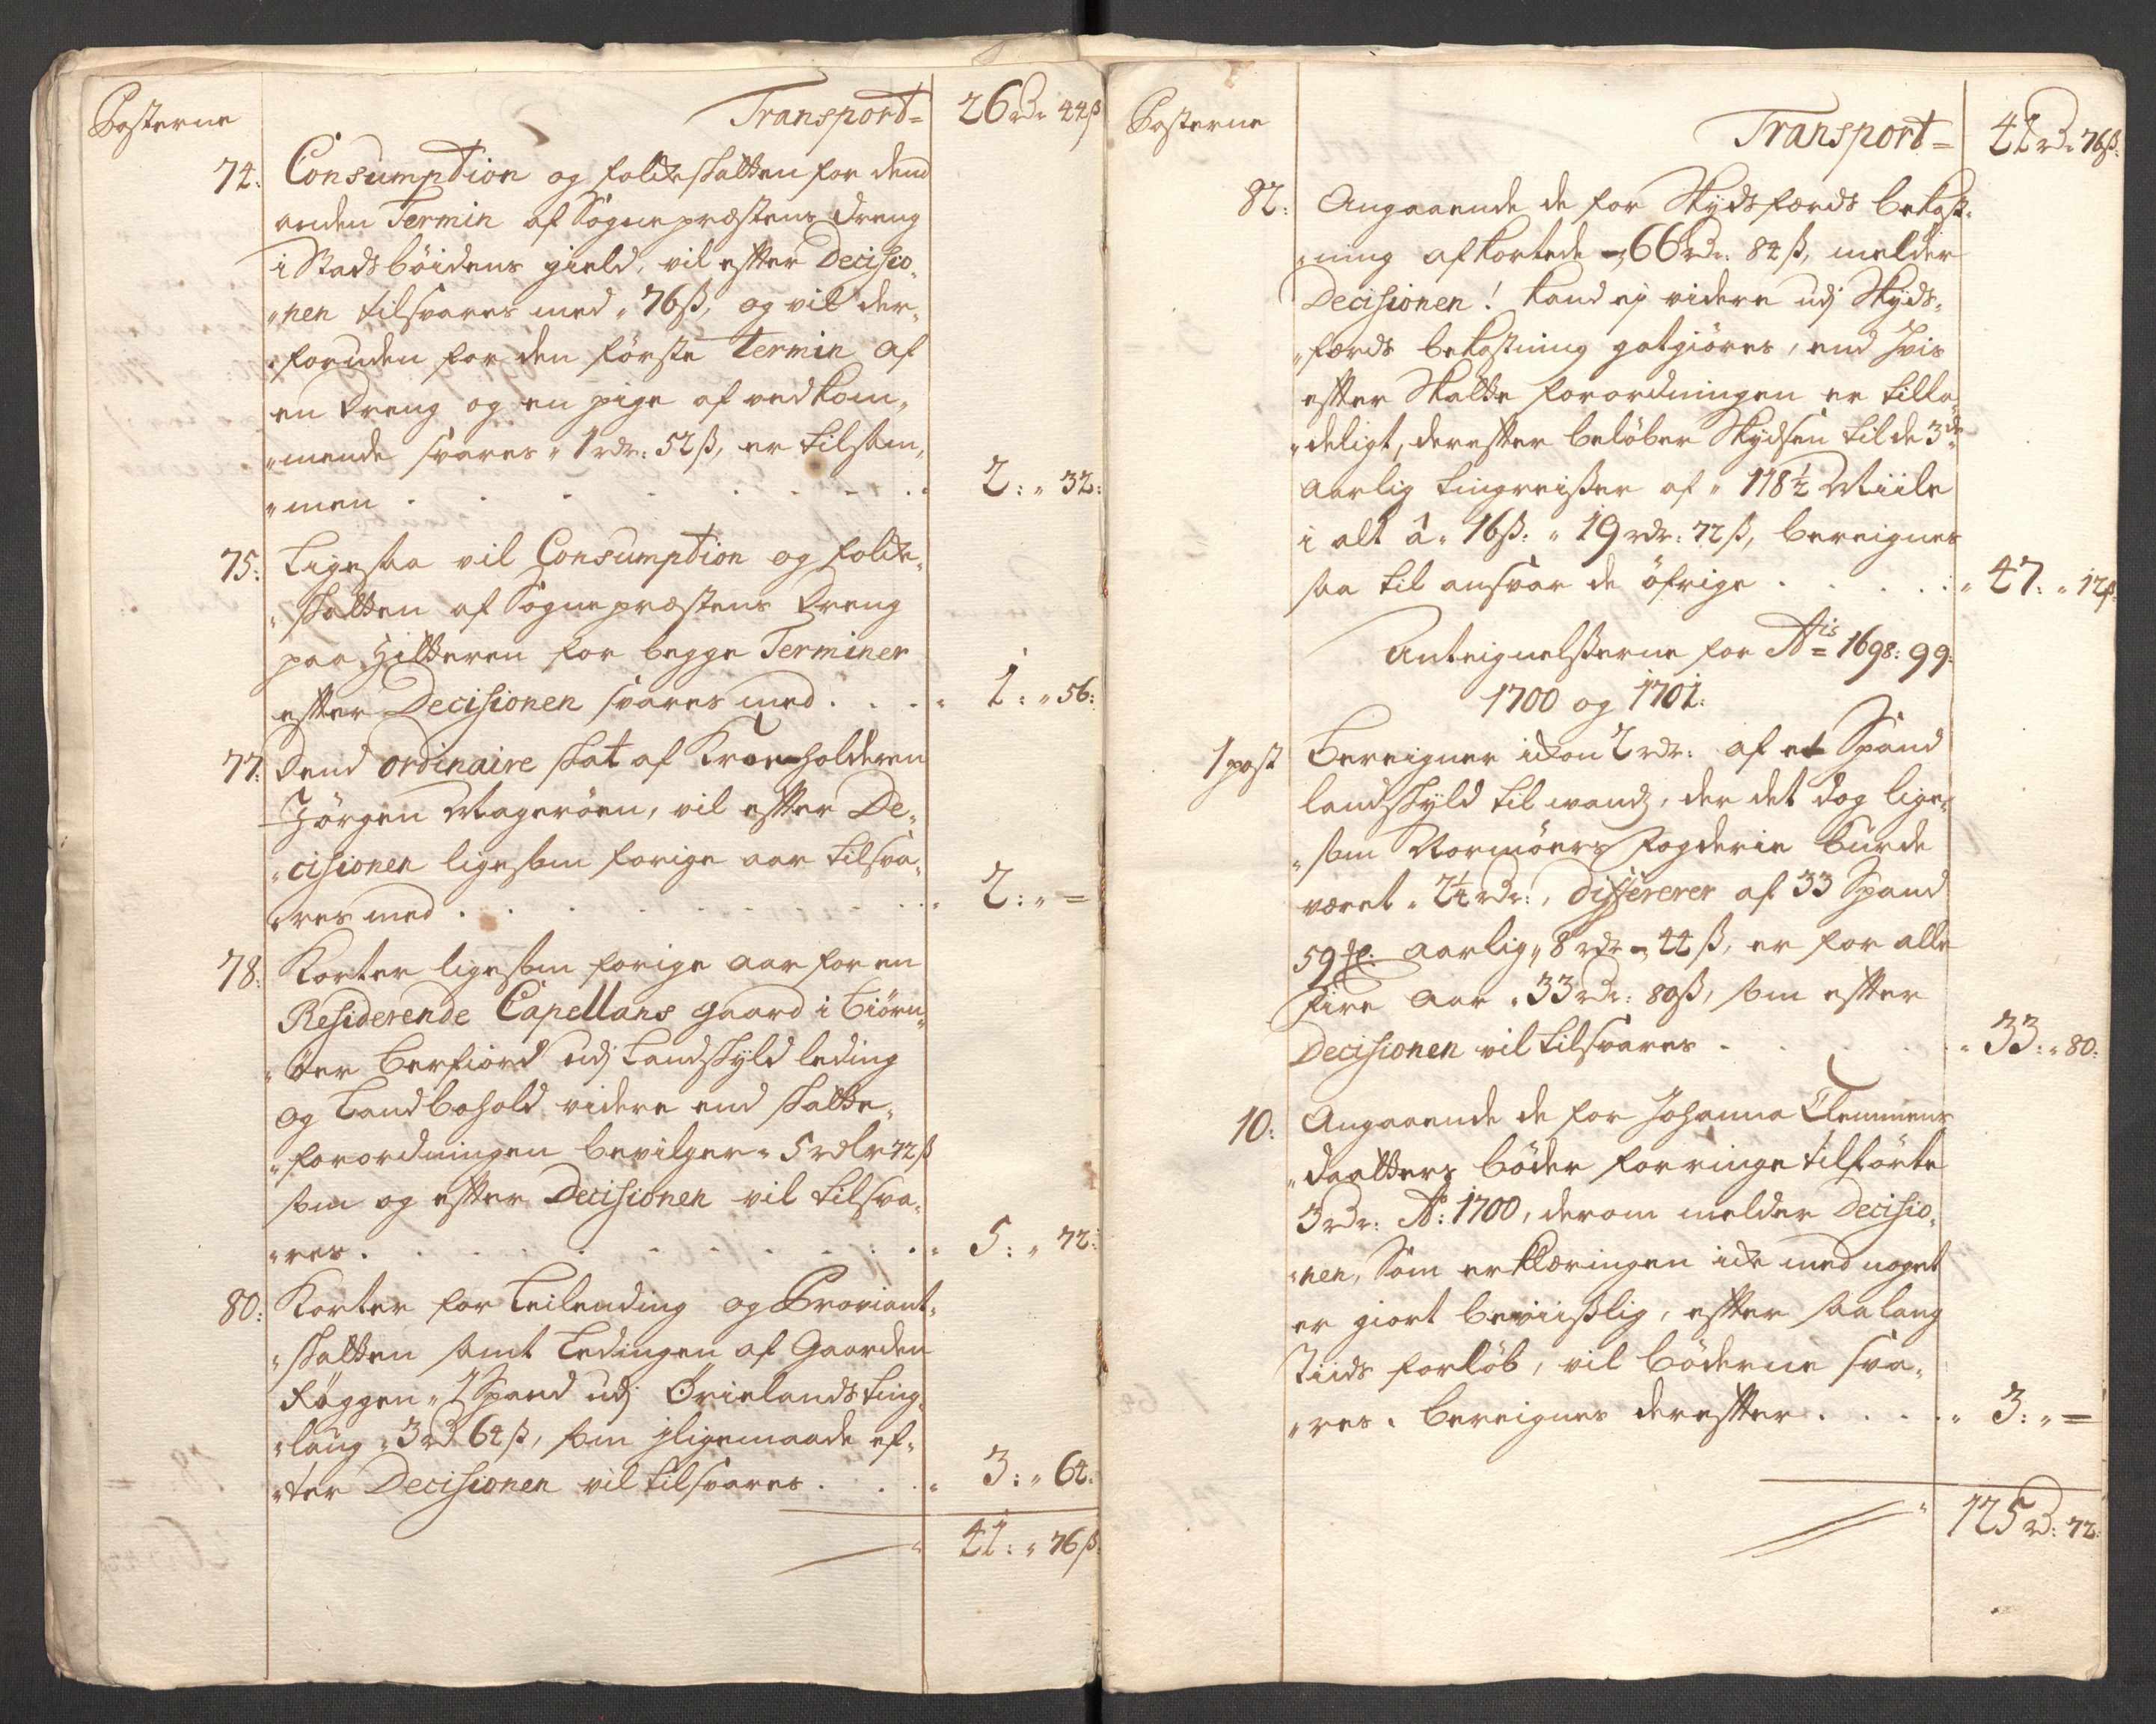 Posterne
Transport=
26 rd. 44 ß
74: Consumption og folcke skatten for dend
anden Termin af Sognepræstens dreng
i Stadsböidens gield, vil efter Decisio„
„nen tilsvares med „ 76 ß, og vil der„
„foruden for den förste Termin af
en dreng og en pige af vedkom„
„mende svares „ 1 rdr: 52 ß, er tilsam„
„men . . . . . . . . 2: „ 32:
75: Ligesaa vil Consumption og folcke„
„skatten af Sognepræstens dreng
paa Hitteren for begge Terminer
efter Decisionen svares med . . . „ 1: „ 56:
77: Dend ordinaire skat af Kroeholderen
Jörgen Mageröen, vil efter De„
„cisionen ligesom forige aar tilsva„
„res med . . . . . . . . „ 2: „ =
78: Korter ligesom forige aar for en
Residerende Capellans gaard i Biörn„
„öer Berfiord udj Landskyld leding
og Landbohold videre end skatte„
„forordningen bevilger „ 5 rdlr 72 ß
som og efter Decisionen vil tilsva„
„res . . . . . . . . „ 5: „ 72:
80: Korter for Leilending og Proviant„
„skatten samt Ledingen af Gaarden
Röggen „ 2 Spand udj Örielands ting„
„laug „ 3 rd 64 ß, som jligemaade ef„
„ter Decisionen vil tilsvares . . . „ 3: „ 64:
41: „ 76 ß:
Posterne
Transport=
41 rd. 76 ß:
82: Angaaende de for Skydsferds bekost„
„ning afkortede - 66 rdr: 84 ß, melder
Decisionen! kand ej videre udj Skyds„
„ferds bekostning gotgiöres, end hvis
efter Skatte forordningen er tilla„
„deligt, derefter belöber Skydsen til de 3de
aarlig tingreiser af „ 118½ Miile
i alt â „ 16 ß: „ 19 rdr: 72 ß, bereignes
saa til ansvar de öfrige . . . . „ 47: „ 12 ß.
Anteignelserne for Ais = 1698: 99:
1700 og 1701:
1 post Bereigner ickon 2 rdr: af et Spand
landskyld til wands, der det dog lige„
„som Normöers fogderie burde
været „ 2¼ rdr:, differerer af 33 Spand
59 aarlig „ 8 rdr - 44 ß, er for alle
fire aar „ 33 rdr: 80 ß, som efter
Decisionen vil tilsvares . . . . . „ 33: „ 80:
10: Angaaende de for Johanna Clemmens
„daatters böder forringe tilförte
3 rdr: Ao: 1700, derom melder Decisio„
„nen, Som erklæringen icke med noget
er giort beviislig, efter saa lang
tiids forlöb, vil böderne sva„
„res. bereignes derefter . . . . „ 3: „ =
„ 125 rd: 72: